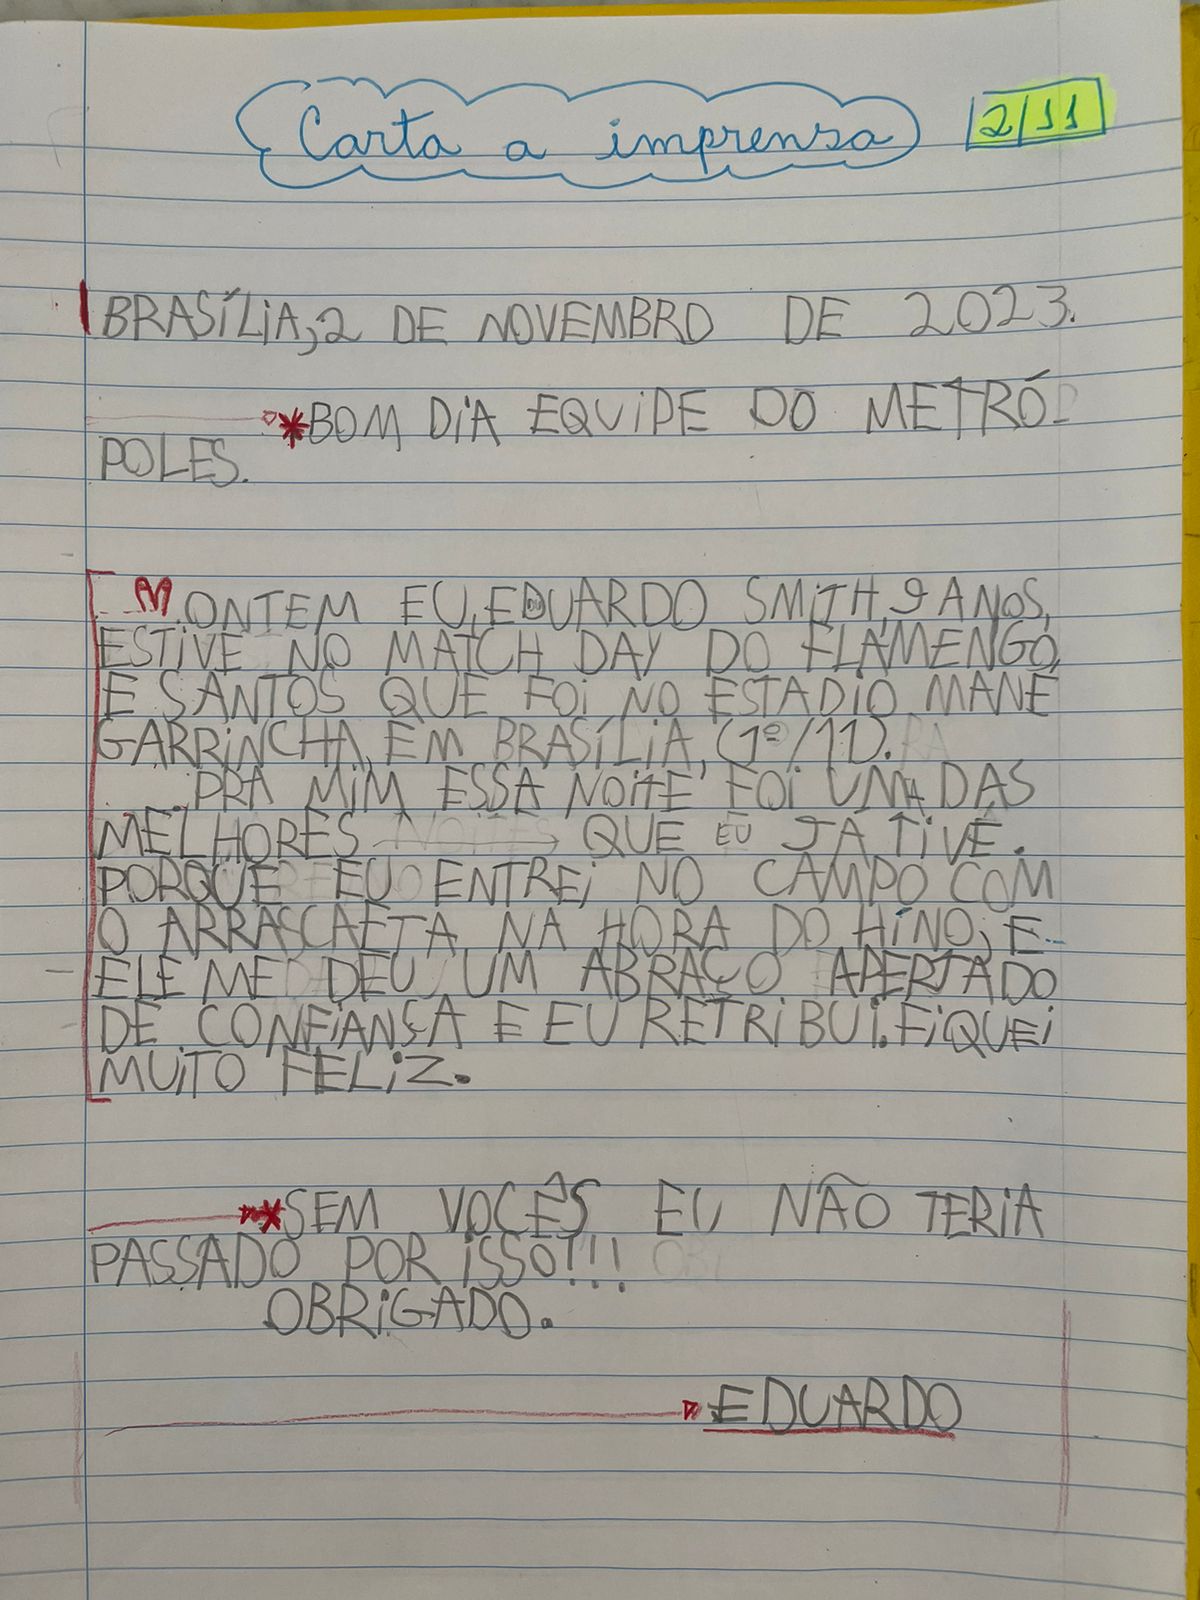 Carta a imprensa
2/11
BRASÍLIA,2 DE NOVEMBRO DE 2023.
*BOM DIA EQUIPE DO METRÓ-
POLES.
ONTEM EU, EDUARDO SMITH, 9 ANOS,
ESTIVE NO MATCH DAY DO FLAMENGO
E SANTOS QUE FOI NO ESTADIO MANÉ
GARRINCHA, EM BRASÍLIA, (1º/11).
PRA MIM ESSA NOITE FOI UMA DAS
MELHORES QUE EU JÁ TIVE.
PORQUE EU ENTREI NO CAMPO COM
O ARRASCAETA NA HORA DO HINO, E
ELE ME DEU UM ABRAÇO APERTADO
DE CONFIANÇA E EU RETRIBUI. FIQUEI
MUITO FELIZ.
*SEM VOCÊS EU NÃO TERIA
PASSADO POR ISSO!!!
OBRIGADO.
EDUARDO